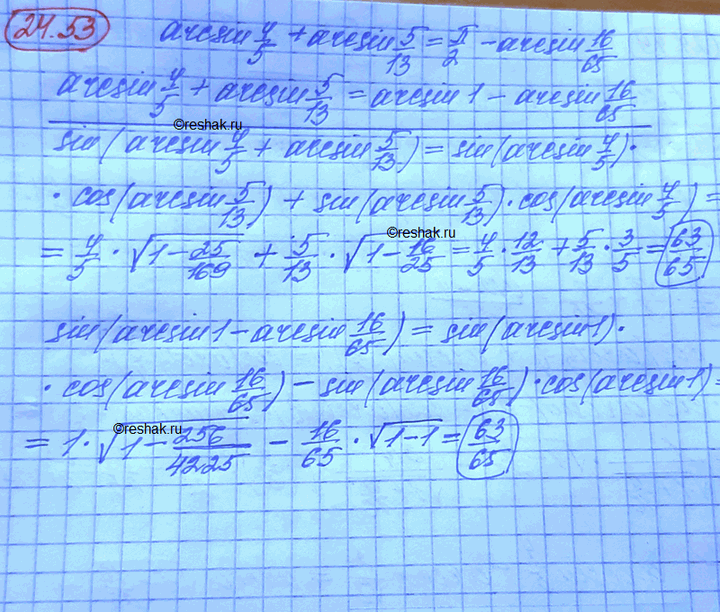 24.53 arcsin 4/5 + arcsin 5/13 = π/2 - arcsin 16/65
arcsin 4/5 + arcsin 5/13 = arcsin 1 - arcsin 16/65
©reshak.ru
sin(arcsin 4/5 + arcsin 5/13) = sin(arcsin 4/5)·
· cos(arcsin 5/13) + sin(arcsin 5/13) · cos(arcsin 4/5) =
©reshak.ru
= 4/5 · √(1 - 25/169) + 5/13 · √(1 - 16/25) = 4/5 · 12/13 + 5/13 · 3/5 = 63/65
sin(arcsin 1 - arcsin 16/65) = sin(arcsin 1)·
· cos(arcsin 16/65) - sin(arcsin 16/65) · cos(arcsin 1) =
©reshak.ru
= 1 · √(1 - 256/4225) - 16/65 · √(1-1) = 63/65